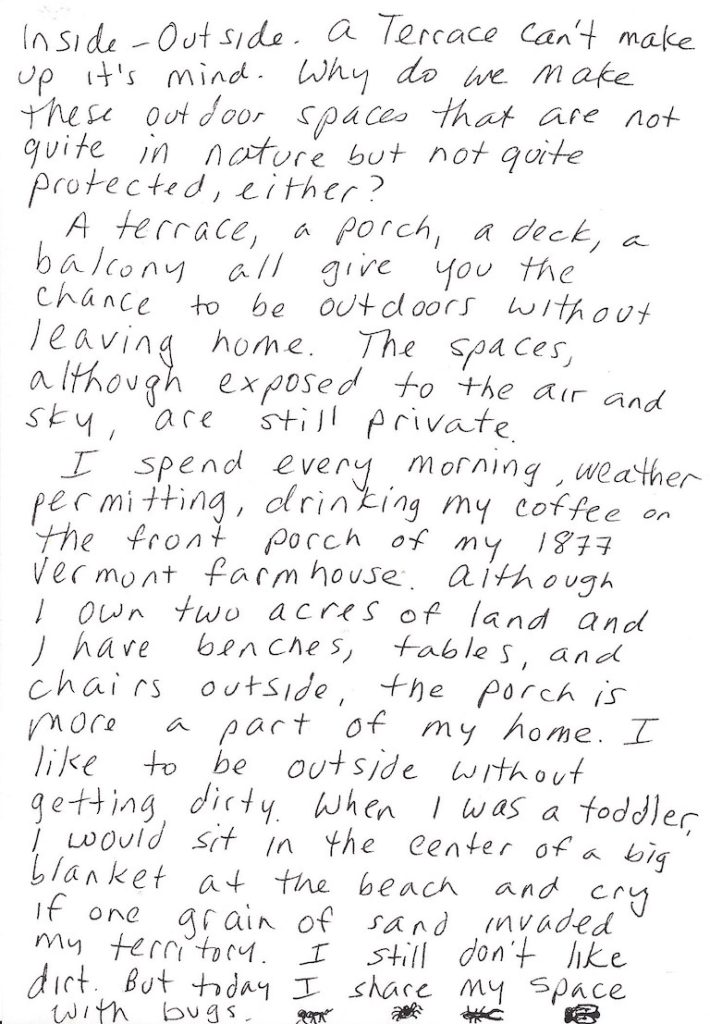 Inside - Outside. A Terrace can't make
up it's mind. Why do we make
these outdoor spaces that are not
quite in nature but not quite
protected, either?
A terrace, a porch, a deck, a
balcony all give you the
chance to be outdoors without
leaving home. The spaces,
although exposed to the air and
sky, are still private.
I spend every morning, weather
permitting, drinking my coffee on
the front porch of my 1877
Vermont farmhouse. Although
I own two acres of land and
I have benches, tables, and
chairs outside, the porch is
more a part of my home. I
like to be outside without
getting dirty. When I was a toddler,
I would sit in the center of a big
blanket at the beach and cry
if one grain of sand invaded
my territory. I still don't like
dirt. But today I share my space
with bugs.